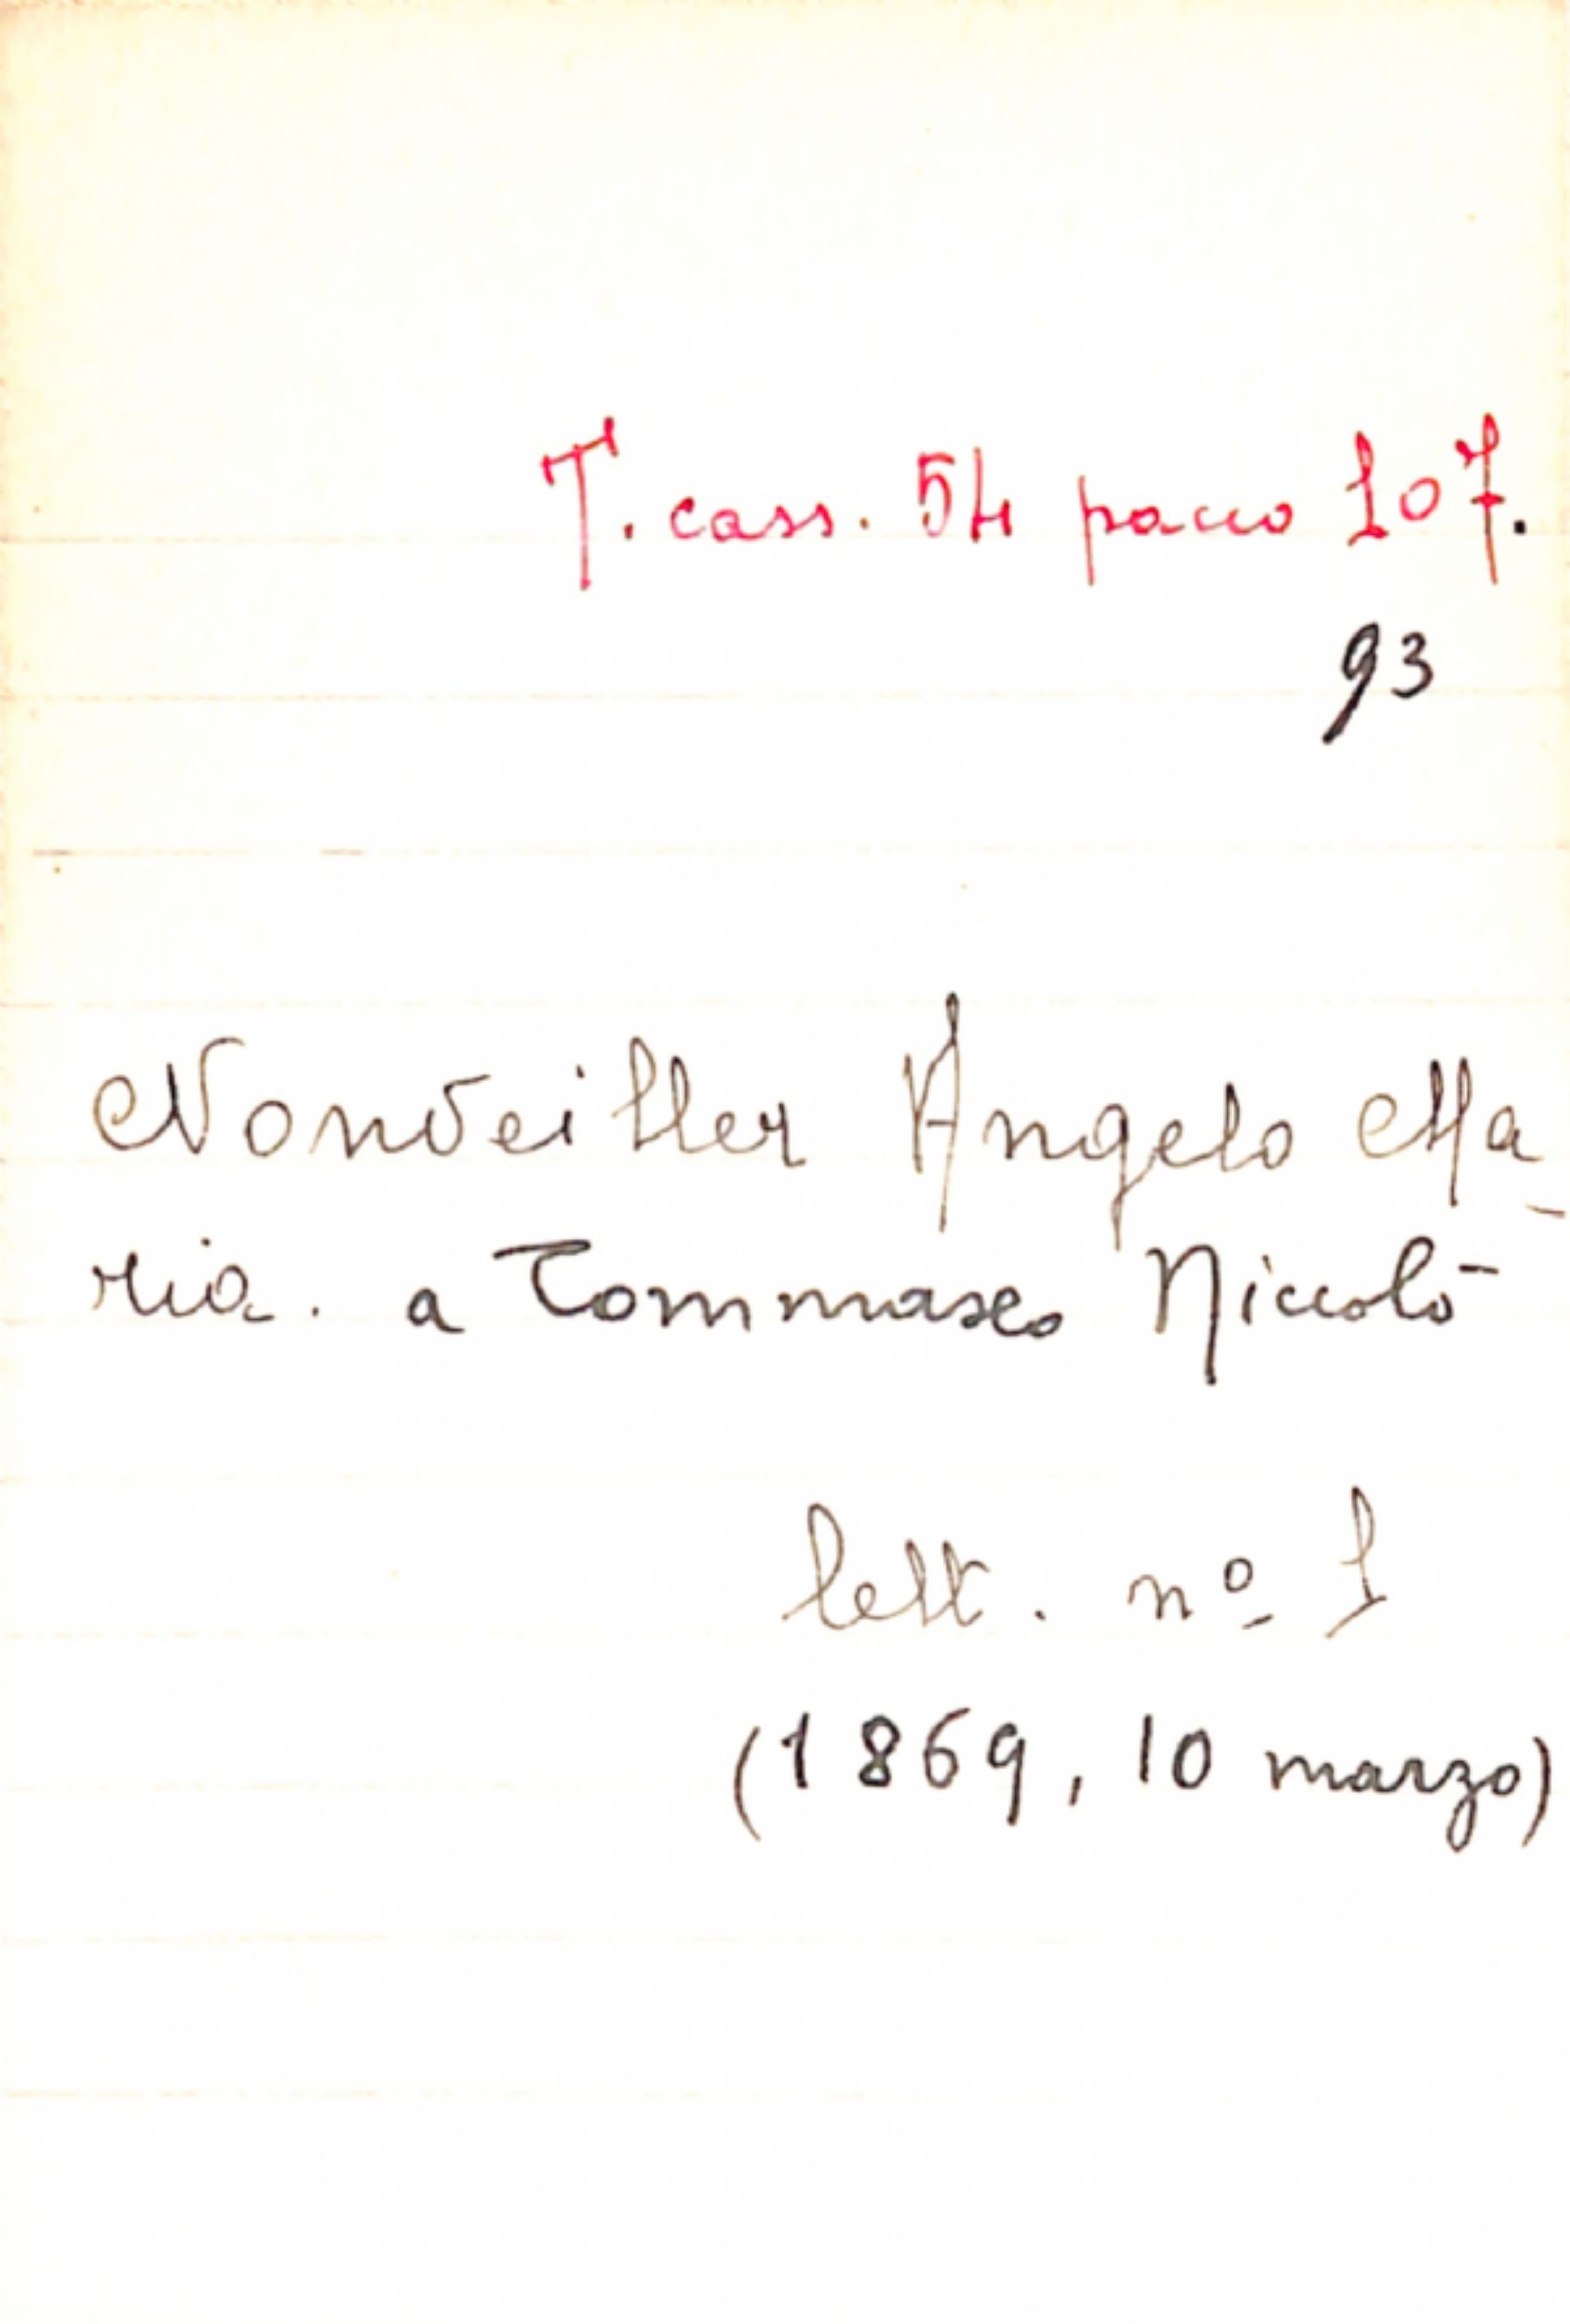 T. cass. 54 pacco 107.
93
Nonveiller Angelo Ma-
ria. a Tommaseo Niccolò
lett. nº 1
(1869, 10 marzo)